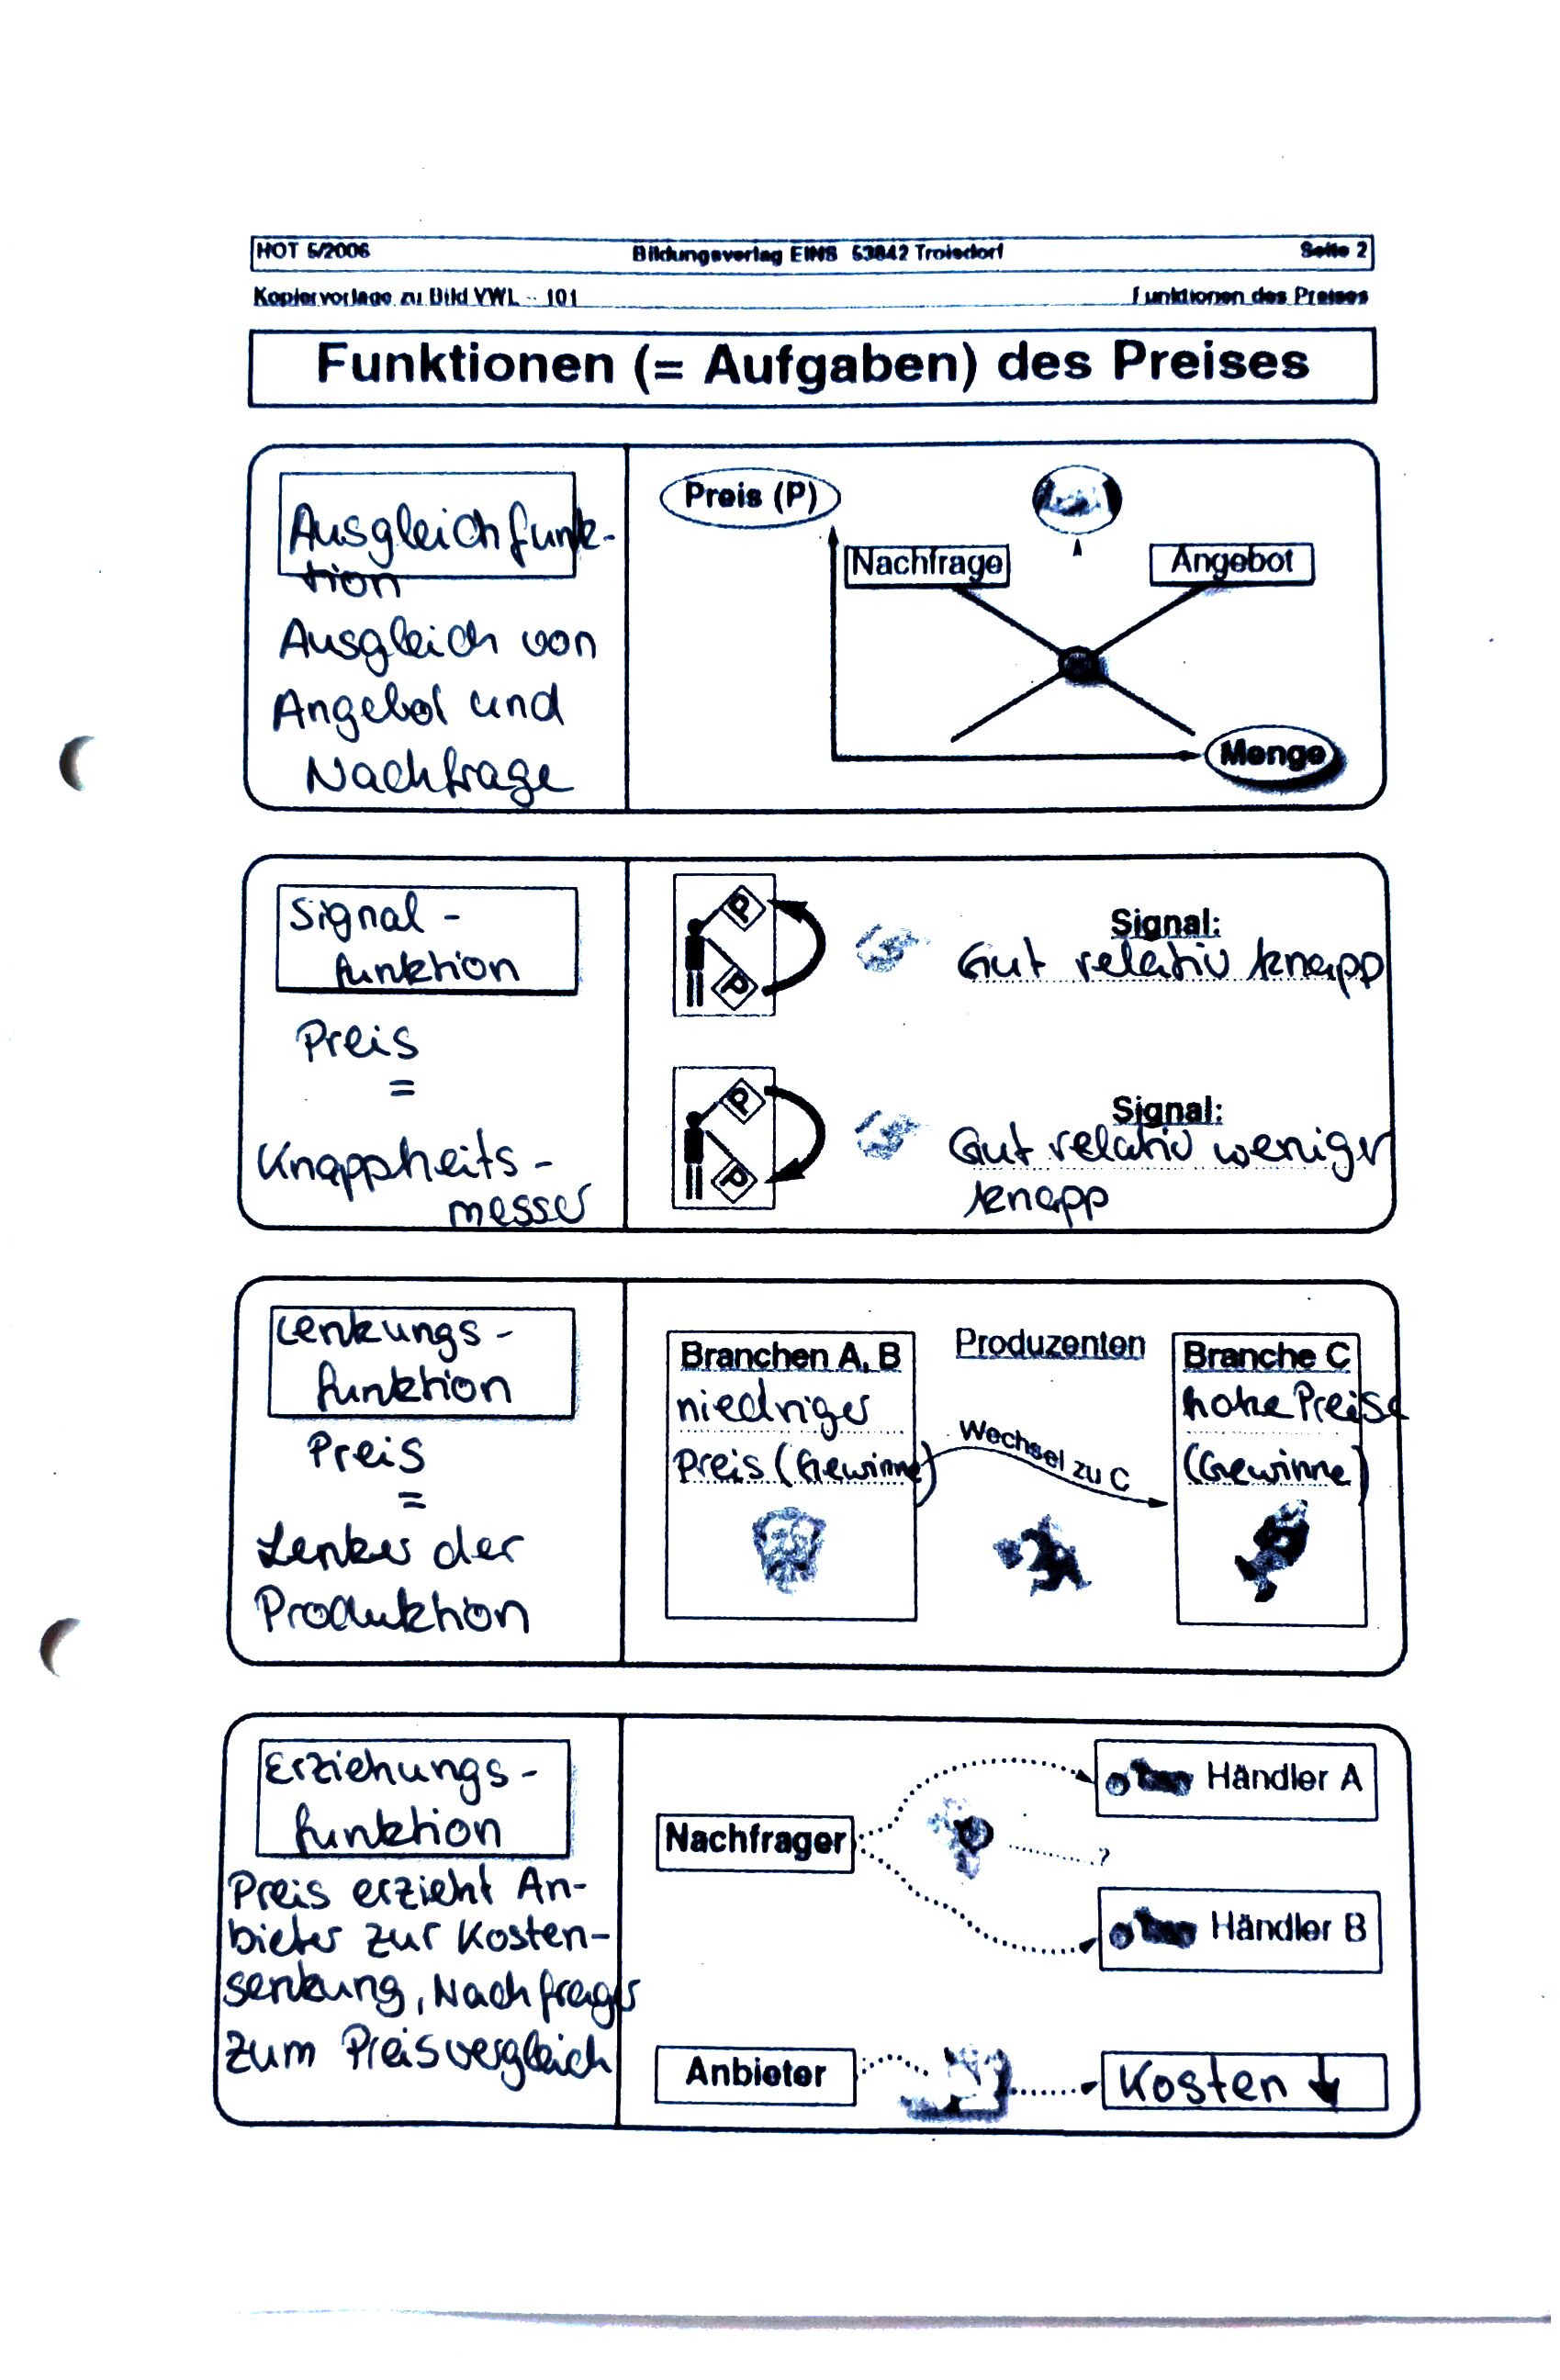 HOT 5/2006 Bildungsverlag EINS 53842 Troisdorf Seite 2
Kopiervorlage zu Bild VWL - 101 Funktionen des Preises
Funktionen (= Aufgaben) des Preises
Ausgleichfunk-
tion
Ausgleich von
Angebot und
Nachfrage
Preis (P)
Nachfrage
Angebot
Menge
Signal-
funktion
Preis
=
Knappheits-
messer
P
P
Signal:
Gut relativ knapp
P
P
Signal:
Gut relativ weniger
knapp
Lenkungs-
funktion
Preis
=
Lenker der
Produktion
Branchen A, B
niedriger
Preis (Gewinne)
Produzenten
Wechsel zu C
Branche C
hohe Preise
(Gewinne)
Erziehungs-
funktion
Preis erzieht An-
bieter zur Kosten-
senkung, Nachfrager
zum Preisvergleich
Nachfrager
Händler A
?
Händler B
Anbieter
Kosten ↓